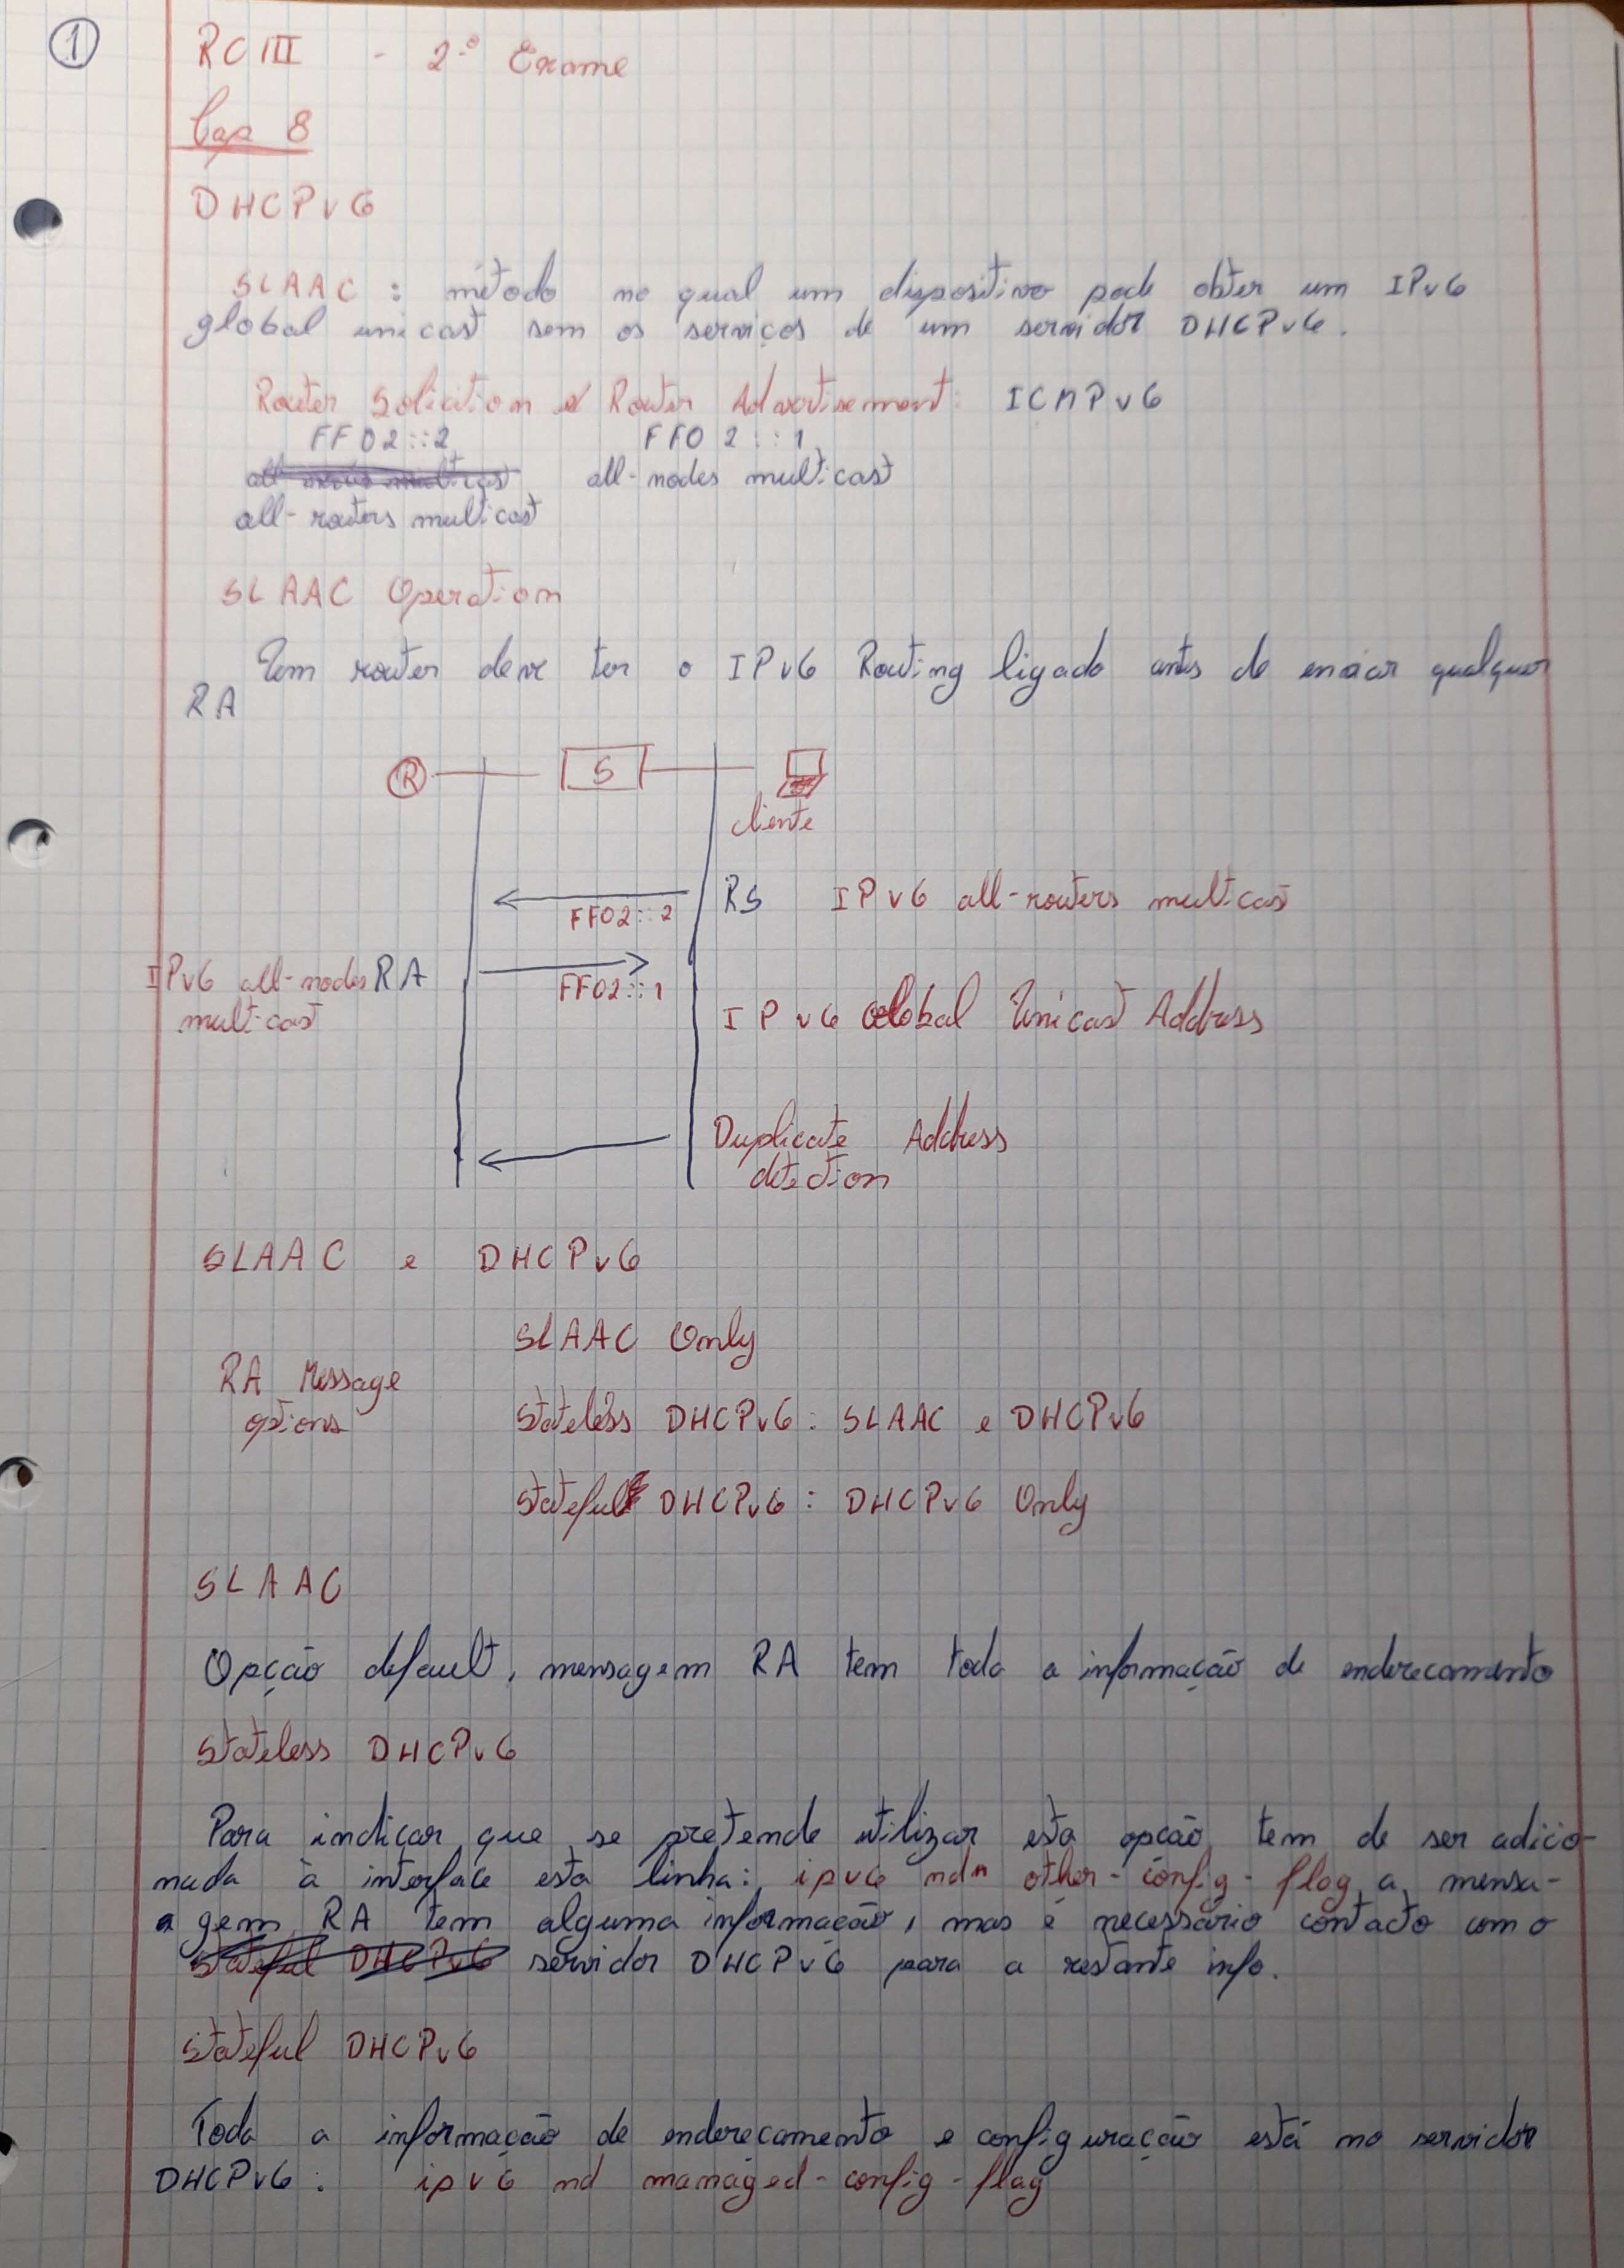 1
RC III - 2º Exame
Cap 8
DHCPv6
SLAAC : método no qual um dispositivo pode obter um IPv6
global unicast sem os serviços de um servidor DHCPv6.
Router Solicition e Router Advertisement: ICMPv6
FF02::2 FF02::1
all-nodes multicast
all-routers multicast
SLAAC Operation
Um router deve ter o IPv6 Routing ligado antes de enviar qualquer
RA
R S
cliente
RS IPv6 all-routers multicast
FF02::2
IPv6 all-nodes RA
multicast
FF02::1
IPv6 Global Unicast Address
Duplicate Address
detection
SLAAC e DHCPv6
SLAAC Only
RA Message
options
Stateless DHCPv6: SLAAC e DHCPv6
Stateful DHCPv6: DHCPv6 Only
SLAAC
Opção default, mensagem RA tem toda a informação de enderecamento
Stateless DHCPv6
Para indicar que se pretende utilizar esta opção, tem de ser adicio-
nada à interface esta linha: ipv6 nd other-config-flag, a mensa-
gem RA tem alguma informação, mas é necessário contacto com o
Stateful DHCPv6 servidor DHCPv6 para a restante info.
Stateful DHCPv6
Toda a informação de enderecamento e configuração está no servidor
DHCPv6: ipv6 nd managed-config-flag